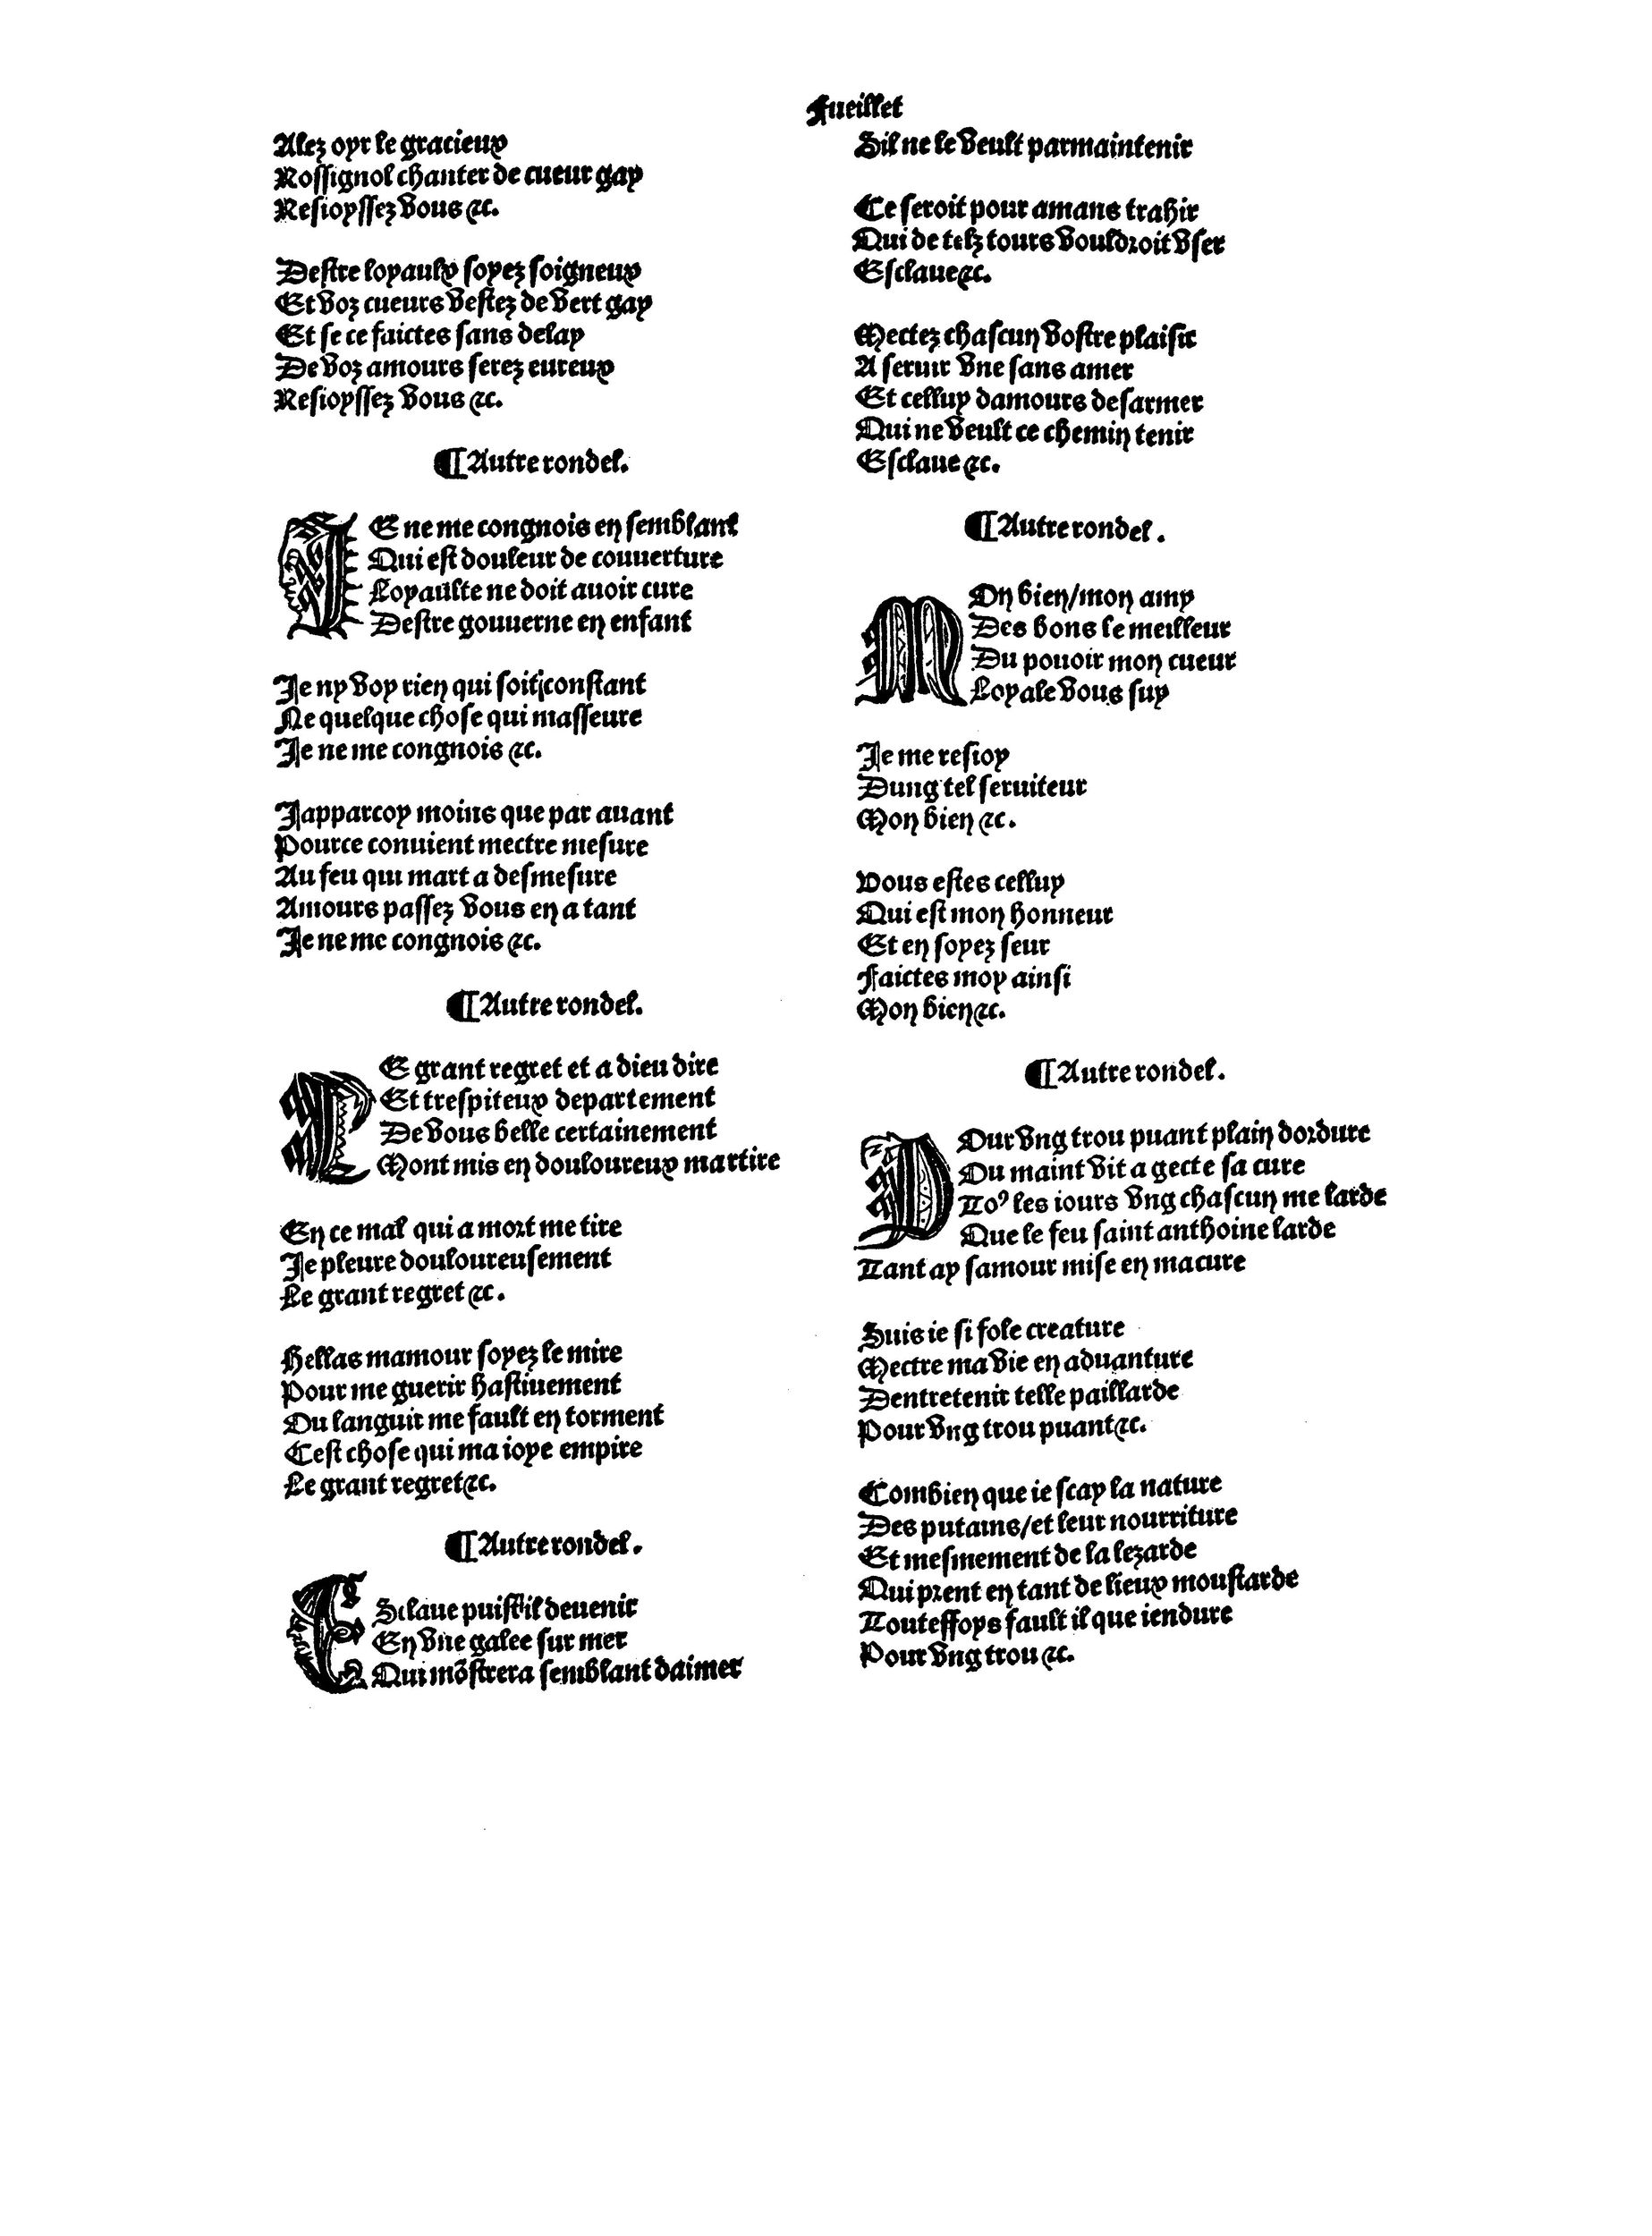 Fueillet
Alez oyr le gracieux
Rossignol chanter de cueur gay
Resioyssez vous &c.
Destre loyaulx soyez soigneux
Et voz cueurs vestez de vert gay
Et se ce faictes sans delay
De voz amours serez eureux
Resioyssez vous &c.
¶ Autre rondel.
JE ne me congnois en semblant
Qui est douleur de couuerture
Loyaulte ne doit auoir cure
Destre gouuerne en enfant
Je ny voy rien qui soit constant
Ne quelque chose qui masseure
Je ne me congnois &c.
Japparcoy moins que par auant
Pource conuient mectre mesure
Au feu qui mart a desmesure
Amours passez vous en a tant
Je ne me congnois &c.
¶ Autre rondel.
LE grant regret et a dieu dire
Et trespiteux departement
De vous belle certainement
Mont mis en douloureux martire
En ce mal qui a mort me tire
Je pleure douloureusement
Le grant regret &c.
Hellas mamour soyez le mire
Pour me guerir hastiuement
Ou languir me fault en torment
Cest chose qui ma ioye empire
Le grant regret &c.
¶ Autre rondel.
ESclaue puist il deuenir
En vne galee sur mer
Qui mõstrera semblant daimer
Sil ne le veult parmaintenir
Ce seroit pour amans trahir
Qui de telz tours vouldroit vser
Esclaue &c.
Mectez chascun vostre plaisir
A seruir vne sans amer
Et celluy damours desarmer
Qui ne veult ce chemin tenir
Esclaue &c.
¶ Autre rondel.
MOn bien/mon amy
Des bons le meilleur
Du pouoir mon cueur
Loyale vous suy
Je me resioy
Dung tel seruiteur
Mon bien &c.
Vous estes celluy
Qui est mon honneur
Et en soyez seur
Faictes moy ainsi
Mon bien &c.
¶ Autre rondel.
POur vng trou puant plain dordure
Ou maint vit a gecte sa cure
Toꝰ les iours vng chascun me larde
Que le feu saint anthoine larde
Tant ay samour mise en macure
Suis ie si fole creature
Mectre ma vie en aduanture
Dentretenir telle paillarde
Pour vng trou puant &c.
Combien que ie scay la nature
Des putains/et leur nourriture
Et mesmement de la lezarde
Qui prent en tant de lieux moustarde
Touteffoys fault il que iendure
Pour vng trou &c.